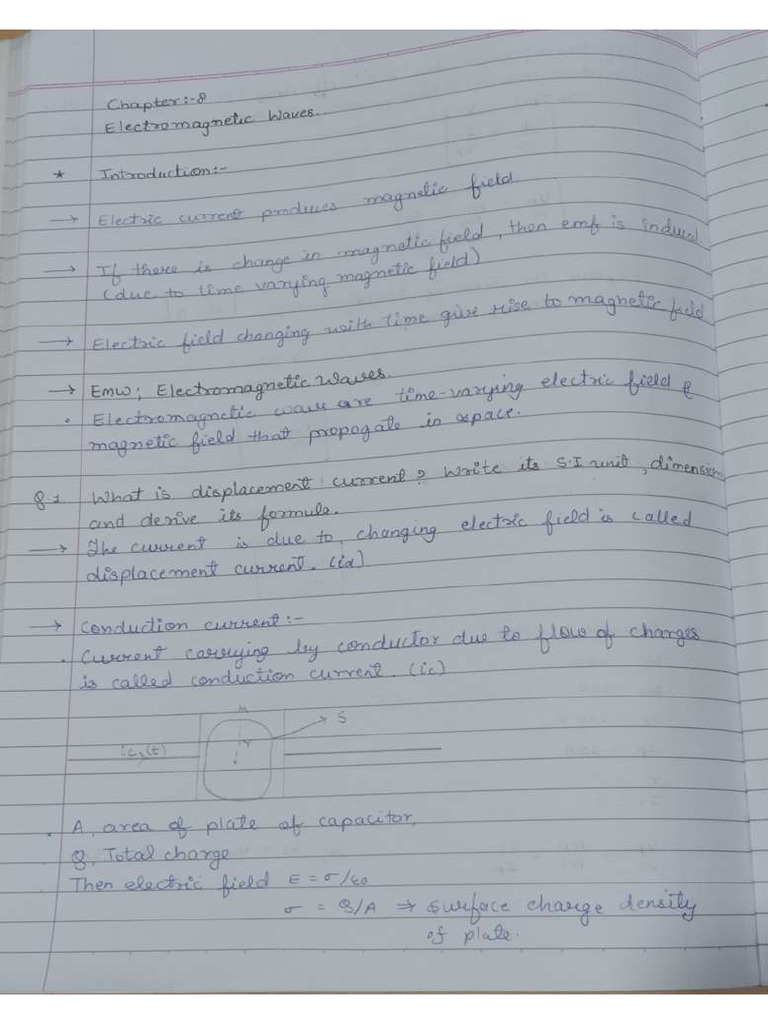 Chapter:-8
Electromagnetic Waves.
★ Introduction:-
→ Electric current produces magnetic field
→ If there is change in magnetic field, then emf is induced
(due to time varying magnetic field)
→ Electric field changing with time give rise to magnetic field
→ EMW; Electromagnetic Waves.
• Electromagnetic wave are time-varying electric field &
magnetic field that propogate in space.
Q.1 What is displacement current? Write its S.I unit, dimension
and derive its formula.
→ The current is due to, changing electric field is called
displacement current. (id)
→ Conduction current:-
• Current carrying by conductor due to flow of charges
is called conduction current. (ic)
M
S
r
ic(t)
• A, area of plate of capacitor,
Q, Total charge
Then electric field E = σ/ε0
σ = Q/A ⇒ surface charge density
of plate.